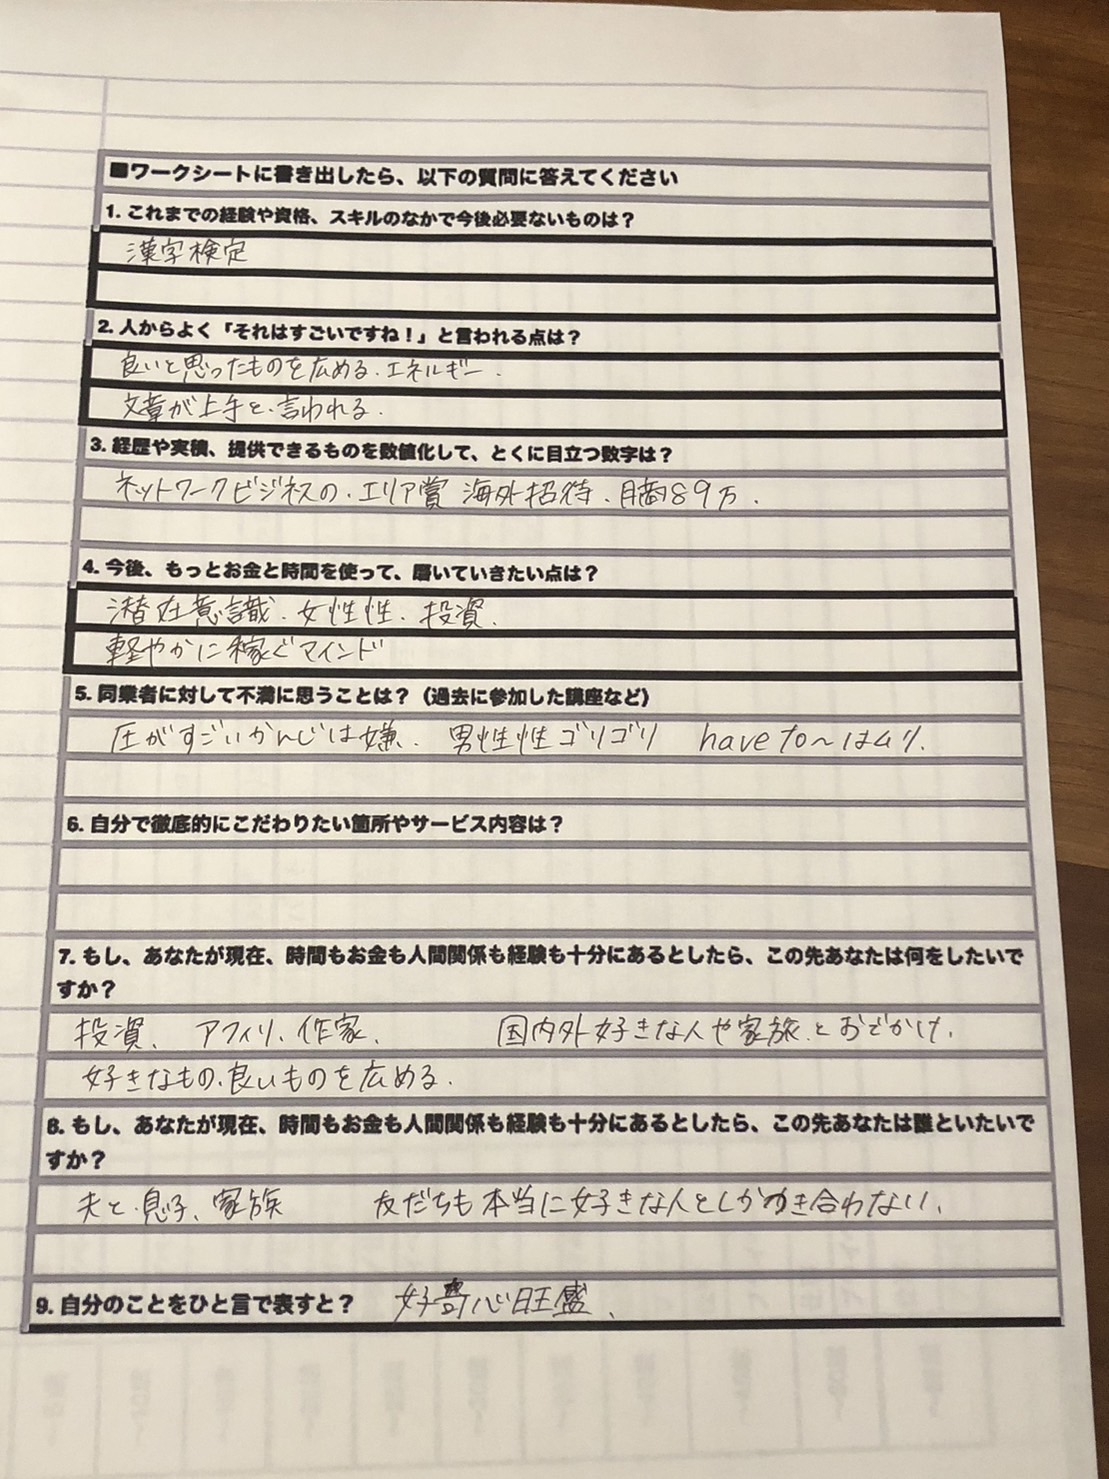 ■ワークシートに書き出したら、以下の質問に答えてください
1. これまでの経験や資格、スキルのなかで今後必要ないものは？
漢字検定
2. 人からよく「それはすごいですね！」と言われる点は？
良いと思ったものを広める.エネルギー.
文章が上手と.言われる.
3. 経歴や実積、提供できるものを数値化して、とくに目立つ数字は？
ネットワークビジネスの.エリア賞 海外招待.月商89万.
4. 今後、もっとお金と時間を使って、磨いていきたい点は？
潜在意識.女性性.投資.
軽やかに稼ぐマインド
5. 同業者に対して不満に思うことは？（過去に参加した講座など）
圧がすごいかんじは嫌. 男性性ゴリゴリ have to〜はムリ.
6. 自分で徹底的にこだわりたい箇所やサービス内容は？
7. もし、あなたが現在、時間もお金も人間関係も経験も十分にあるとしたら、この先あなたは何をしたいで
すか？
投資、アフィリ、作家、 国内外好きな人や家族.とおでかけ.
好きなもの.良いものを広める.
8. もし、あなたが現在、時間もお金も人間関係も経験も十分にあるとしたら、この先あなたは誰といたいで
すか？
夫と.息子、家族 友だちも本当に好きな人としかつき合わない.
9. 自分のことをひと言で表すと？ 好奇心旺盛、